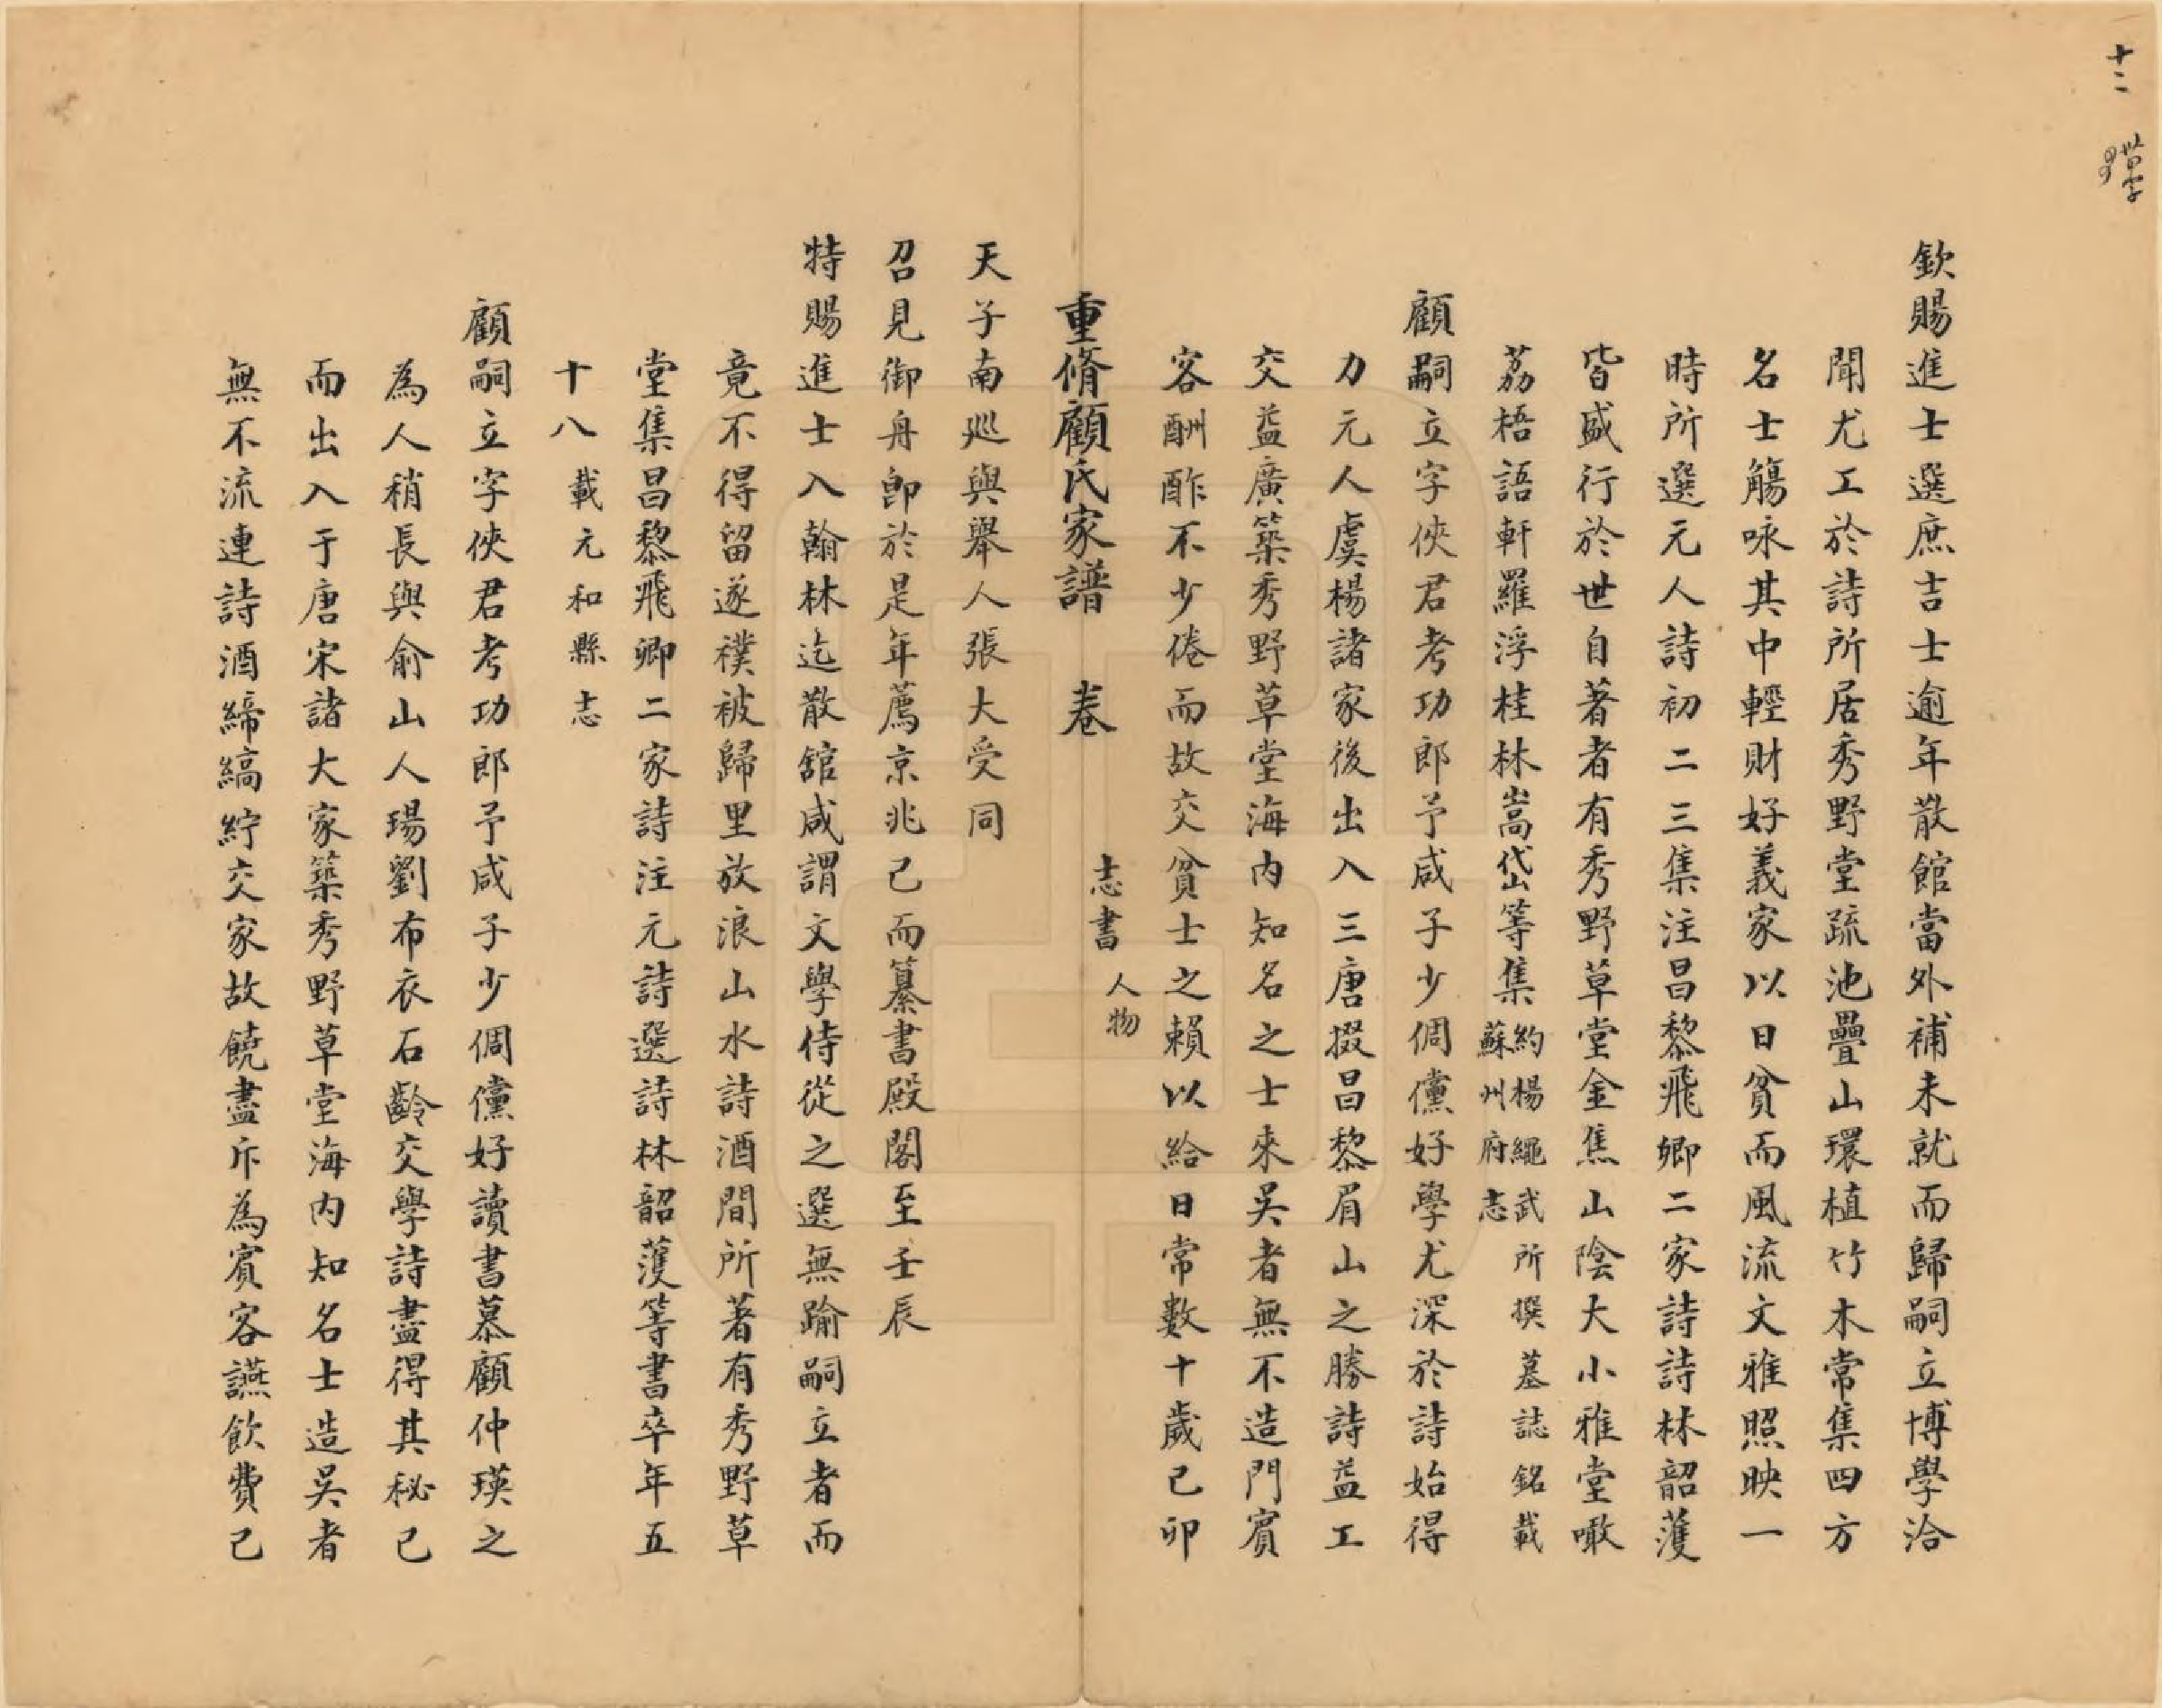 十二
欽賜進士選庶吉士逾年散館當外補未就而歸嗣立博學洽
聞尤工於詩所居秀野堂疏池疊山環植竹木常集四方
名士觴咏其中輕財好義家以日貧而風流文雅照映一
時所選元人詩初二三集注昌黎飛卿二家詩詩林韶濩
皆盛行於世自著者有秀野草堂金焦山陰大小雅堂噉
荔梧語軒羅浮桂林嵩岱等集約楊繩武所撰墓誌銘載蘇州府志
顧嗣立字俠君考功郎予咸子少倜儻好學尤深於詩始得
力元人虞楊諸家後出入三唐掇昌黎眉山之勝詩益工
交益廣築秀野草堂海内知名之士來吳者無不造門賓
客酬酢不少倦而故交貧士之賴以給日常數十歲己卯
重脩顧氏家譜 卷 志書 人物
天子南廵與舉人張大受同
召見御舟卽於是年薦京兆己而纂書殿閣至壬辰
特賜進士入翰林迄散舘咸謂文學侍從之選無踰嗣立者而
竟不得留遂襆被歸里放浪山水詩酒間所著有秀野草
堂集昌黎飛卿二家詩注元詩選詩林韶濩等書卒年五
十八載元和縣志
顧嗣立字俠君考功郎予咸子少倜儻好讀書慕顧仲瑛之
為人稍長與俞山人瑒劉布衣石齡交學詩盡得其秘已
而出入于唐宋諸大家築秀野草堂海内知名士造吳者
無不流連詩酒締縞紵交家故饒盡斥為賓客讌飲費已